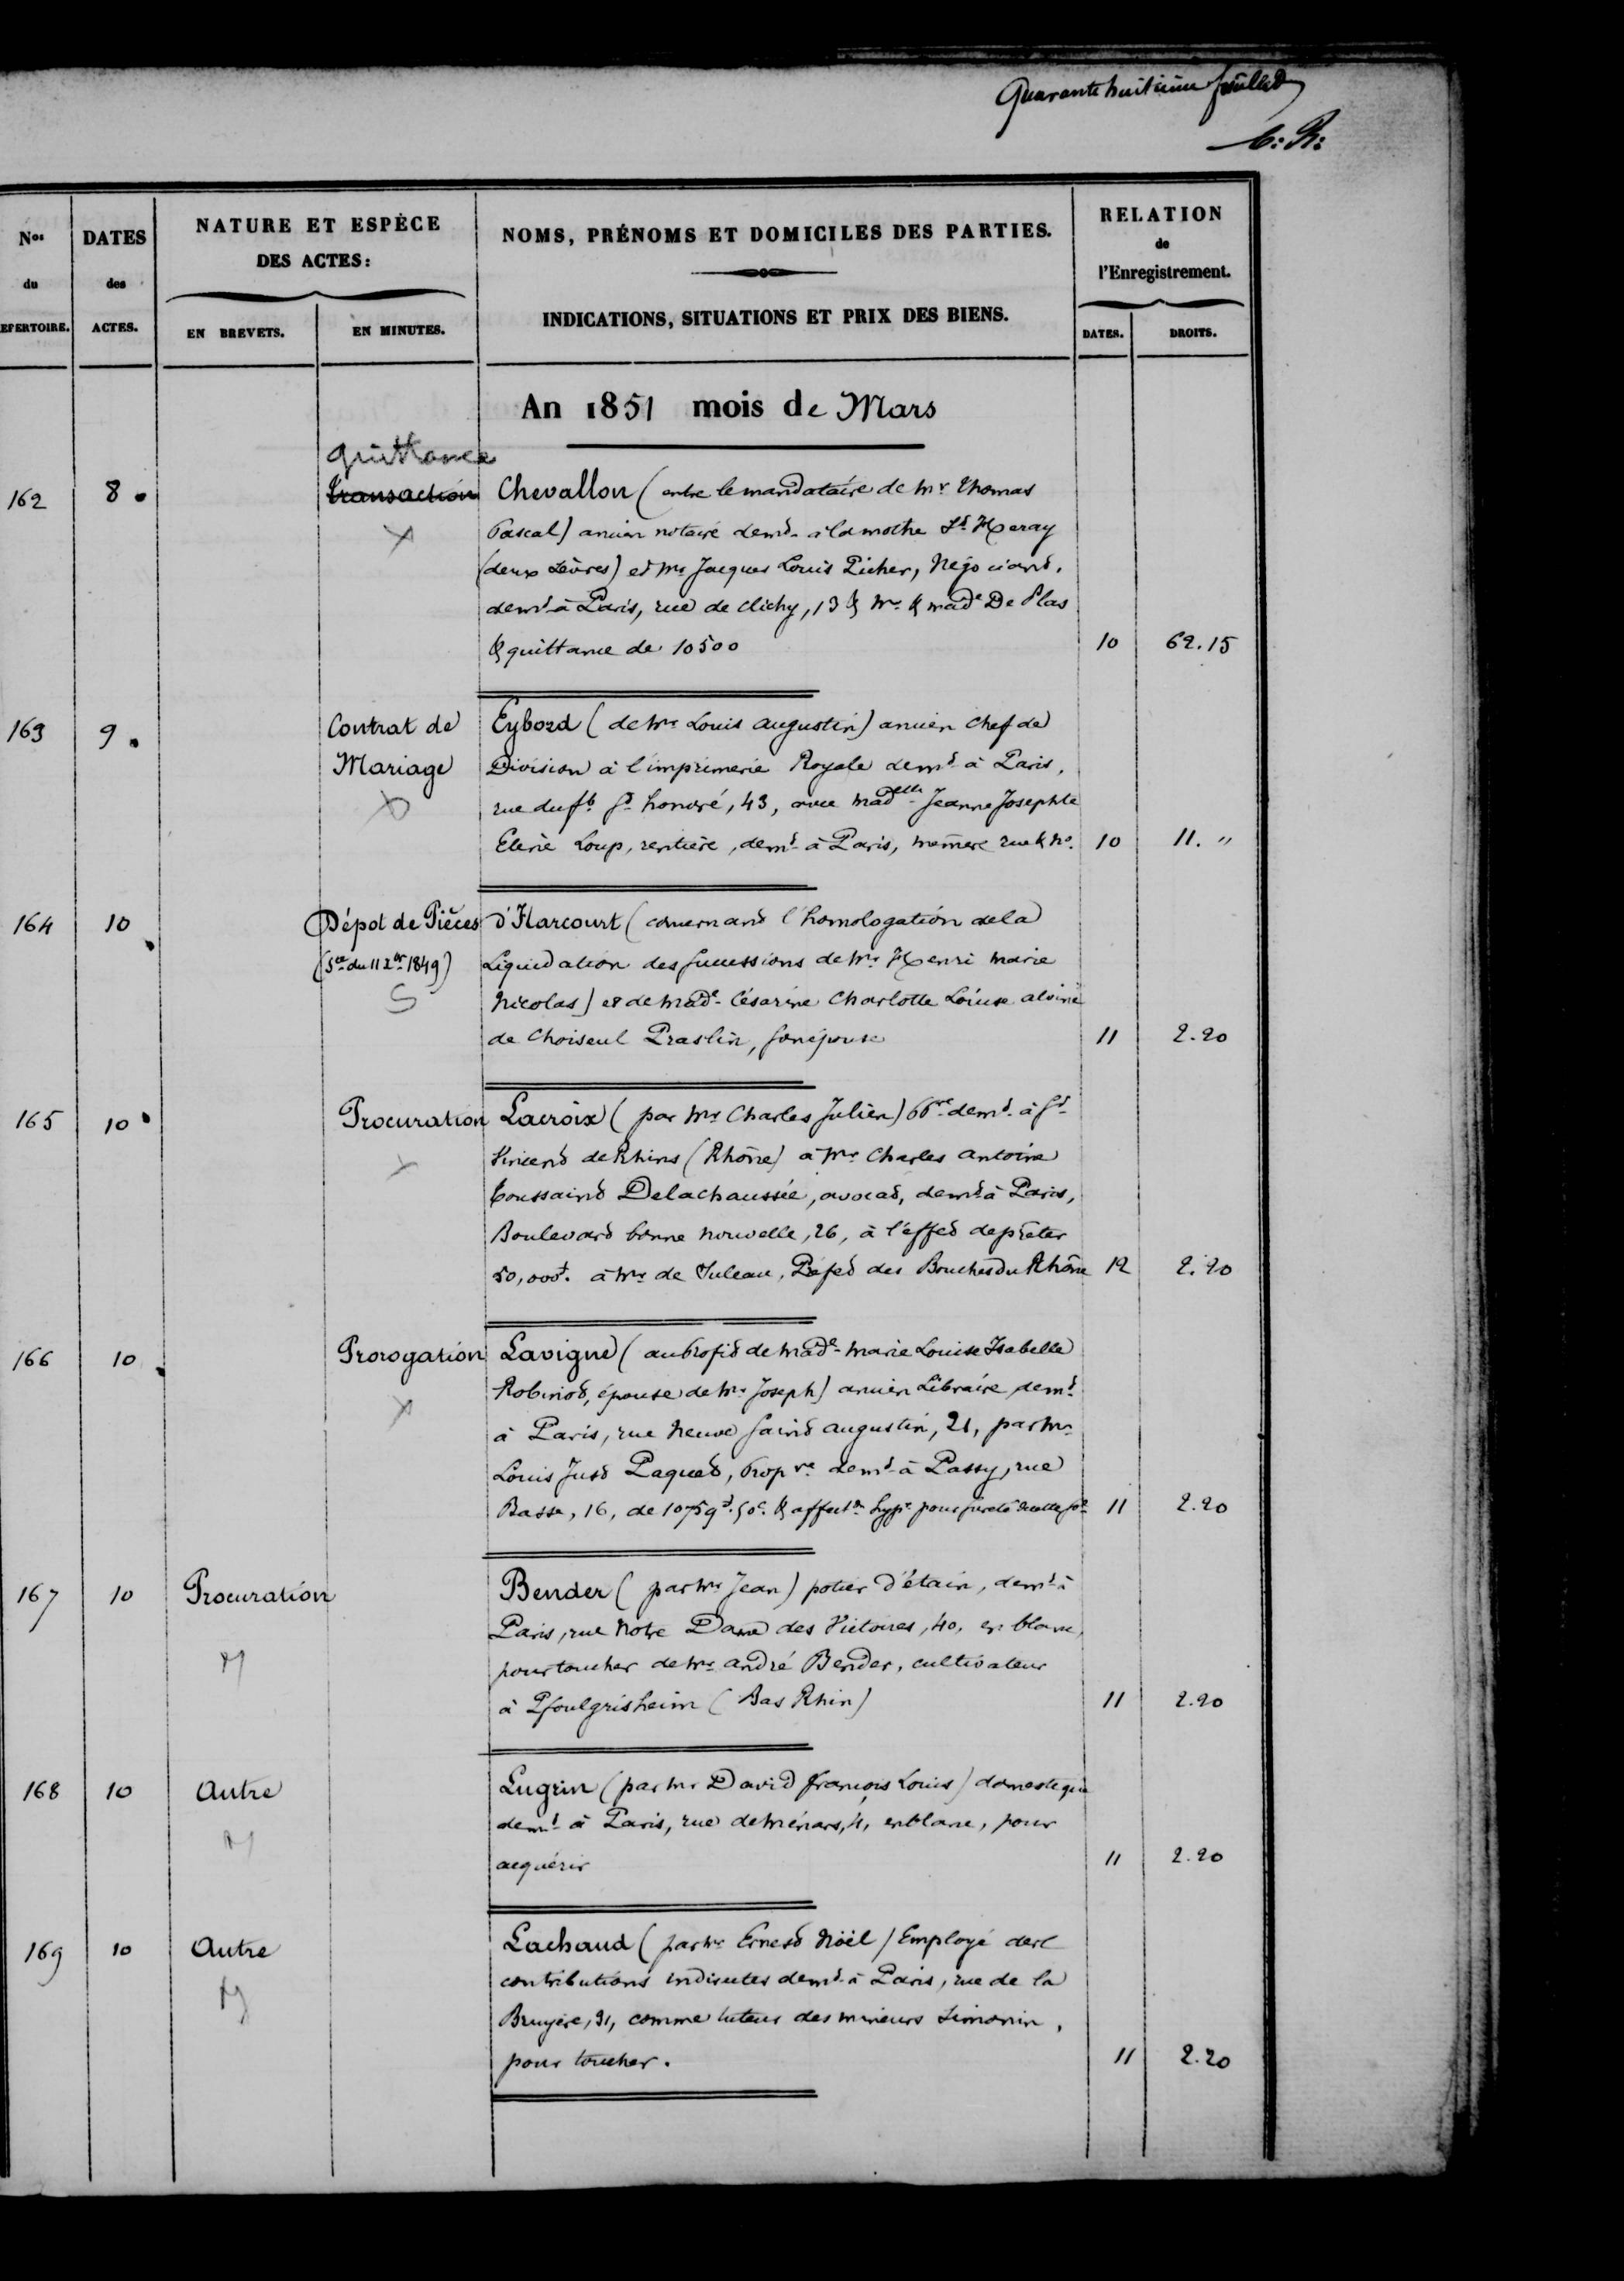 Quarante huitième feuillet
C: R:
Nos du REPERTOIRE.
DATES des ACTES.
NATURE ET ESPÈCE DES ACTES:
EN BREVETS.
EN MINUTES.
NOMS, PRÉNOMS ET DOMICILES DES PARTIES.
INDICATIONS, SITUATIONS ET PRIX DES BIENS.
RELATION de l'Enregistrement.
DATES.
DROITS.
An 1851 mois de Mars
quittance
162 8 transaction Chevallon (entre le mandataire de Mr Thomas
Pascal) ancien notaire demt à la mothe St Heray
(deux Sèvres) et Mr Jacques Louis Picher, Négociant,
demt à Paris, rue de Clichy, 13 & Mr & made De Plas
& quittance de 10500 10 62.15
163 9 Contrat de Eybord (de Mr Louis Augustin) ancien Chef de
Mariage Division à l'imprimerie Royale demt à Paris,
rue du fb St honoré, 43, avec madelle Jeanne Josephte
Loup, rentière, demt à Paris, même rue & no. 10 11. "
164 10 Dépot de Pièces d'Harcourt (concernant l'homologation de la
(Sce du 11 Xbr 1849) Liquidation des successions de Mr Henri Marie
S Nicolas) et de Made Césarine Charlotte Louise
de Choiseul Praslin, son épouse 11 2.20
165 10 Procuration Lacroix (par Mr Charles Julien) ppre demt à St
Vincent de Rhins (Rhône) à Mr Charles Antoine
Toussaint Delachaussée, avocat, demt à Paris,
Boulevard bonne nouvelle, 26, à l'effet de prêter
50,000f. à Mr de Suleau, Préfet des Bouches du Rhône 12 2.20
166 10 Prorogation Lavigne (au profit de Made Marie Louise Isabelle
Robinot, épouse de Mr Joseph) ancien Libraire, demt
à Paris, rue Neuve Saint Augustin, 21, par Mr
Louis Just Paquet, propre demt à Passy, rue
Basse, 16, de 10759f. 50c. & affectn hypre pour sureté 11 2.20
167 10 Procuration Bender (par Mr Jean) potier d'étain, demt à
Paris, rue Notre Dame des Victoires, 40, en blanc,
M pour toucher de Mr André Bender, cultivateur
à Pfoulgrisheim (Bas Rhin) 11 2.20
168 10 Autre Lugrin (par Mr David François Louis) domestique
M demt à Paris, rue de Ménars, 4, en blanc, pour
acquérir 11 2.20
169 10 Autre Lachaud (par Mr Ernest Noël) Employé des
contributions indirectes demt à Paris, rue de la
M Bruyère, 31, comme tuteur des mineurs Simonin,
pour toucher. 11 2.20